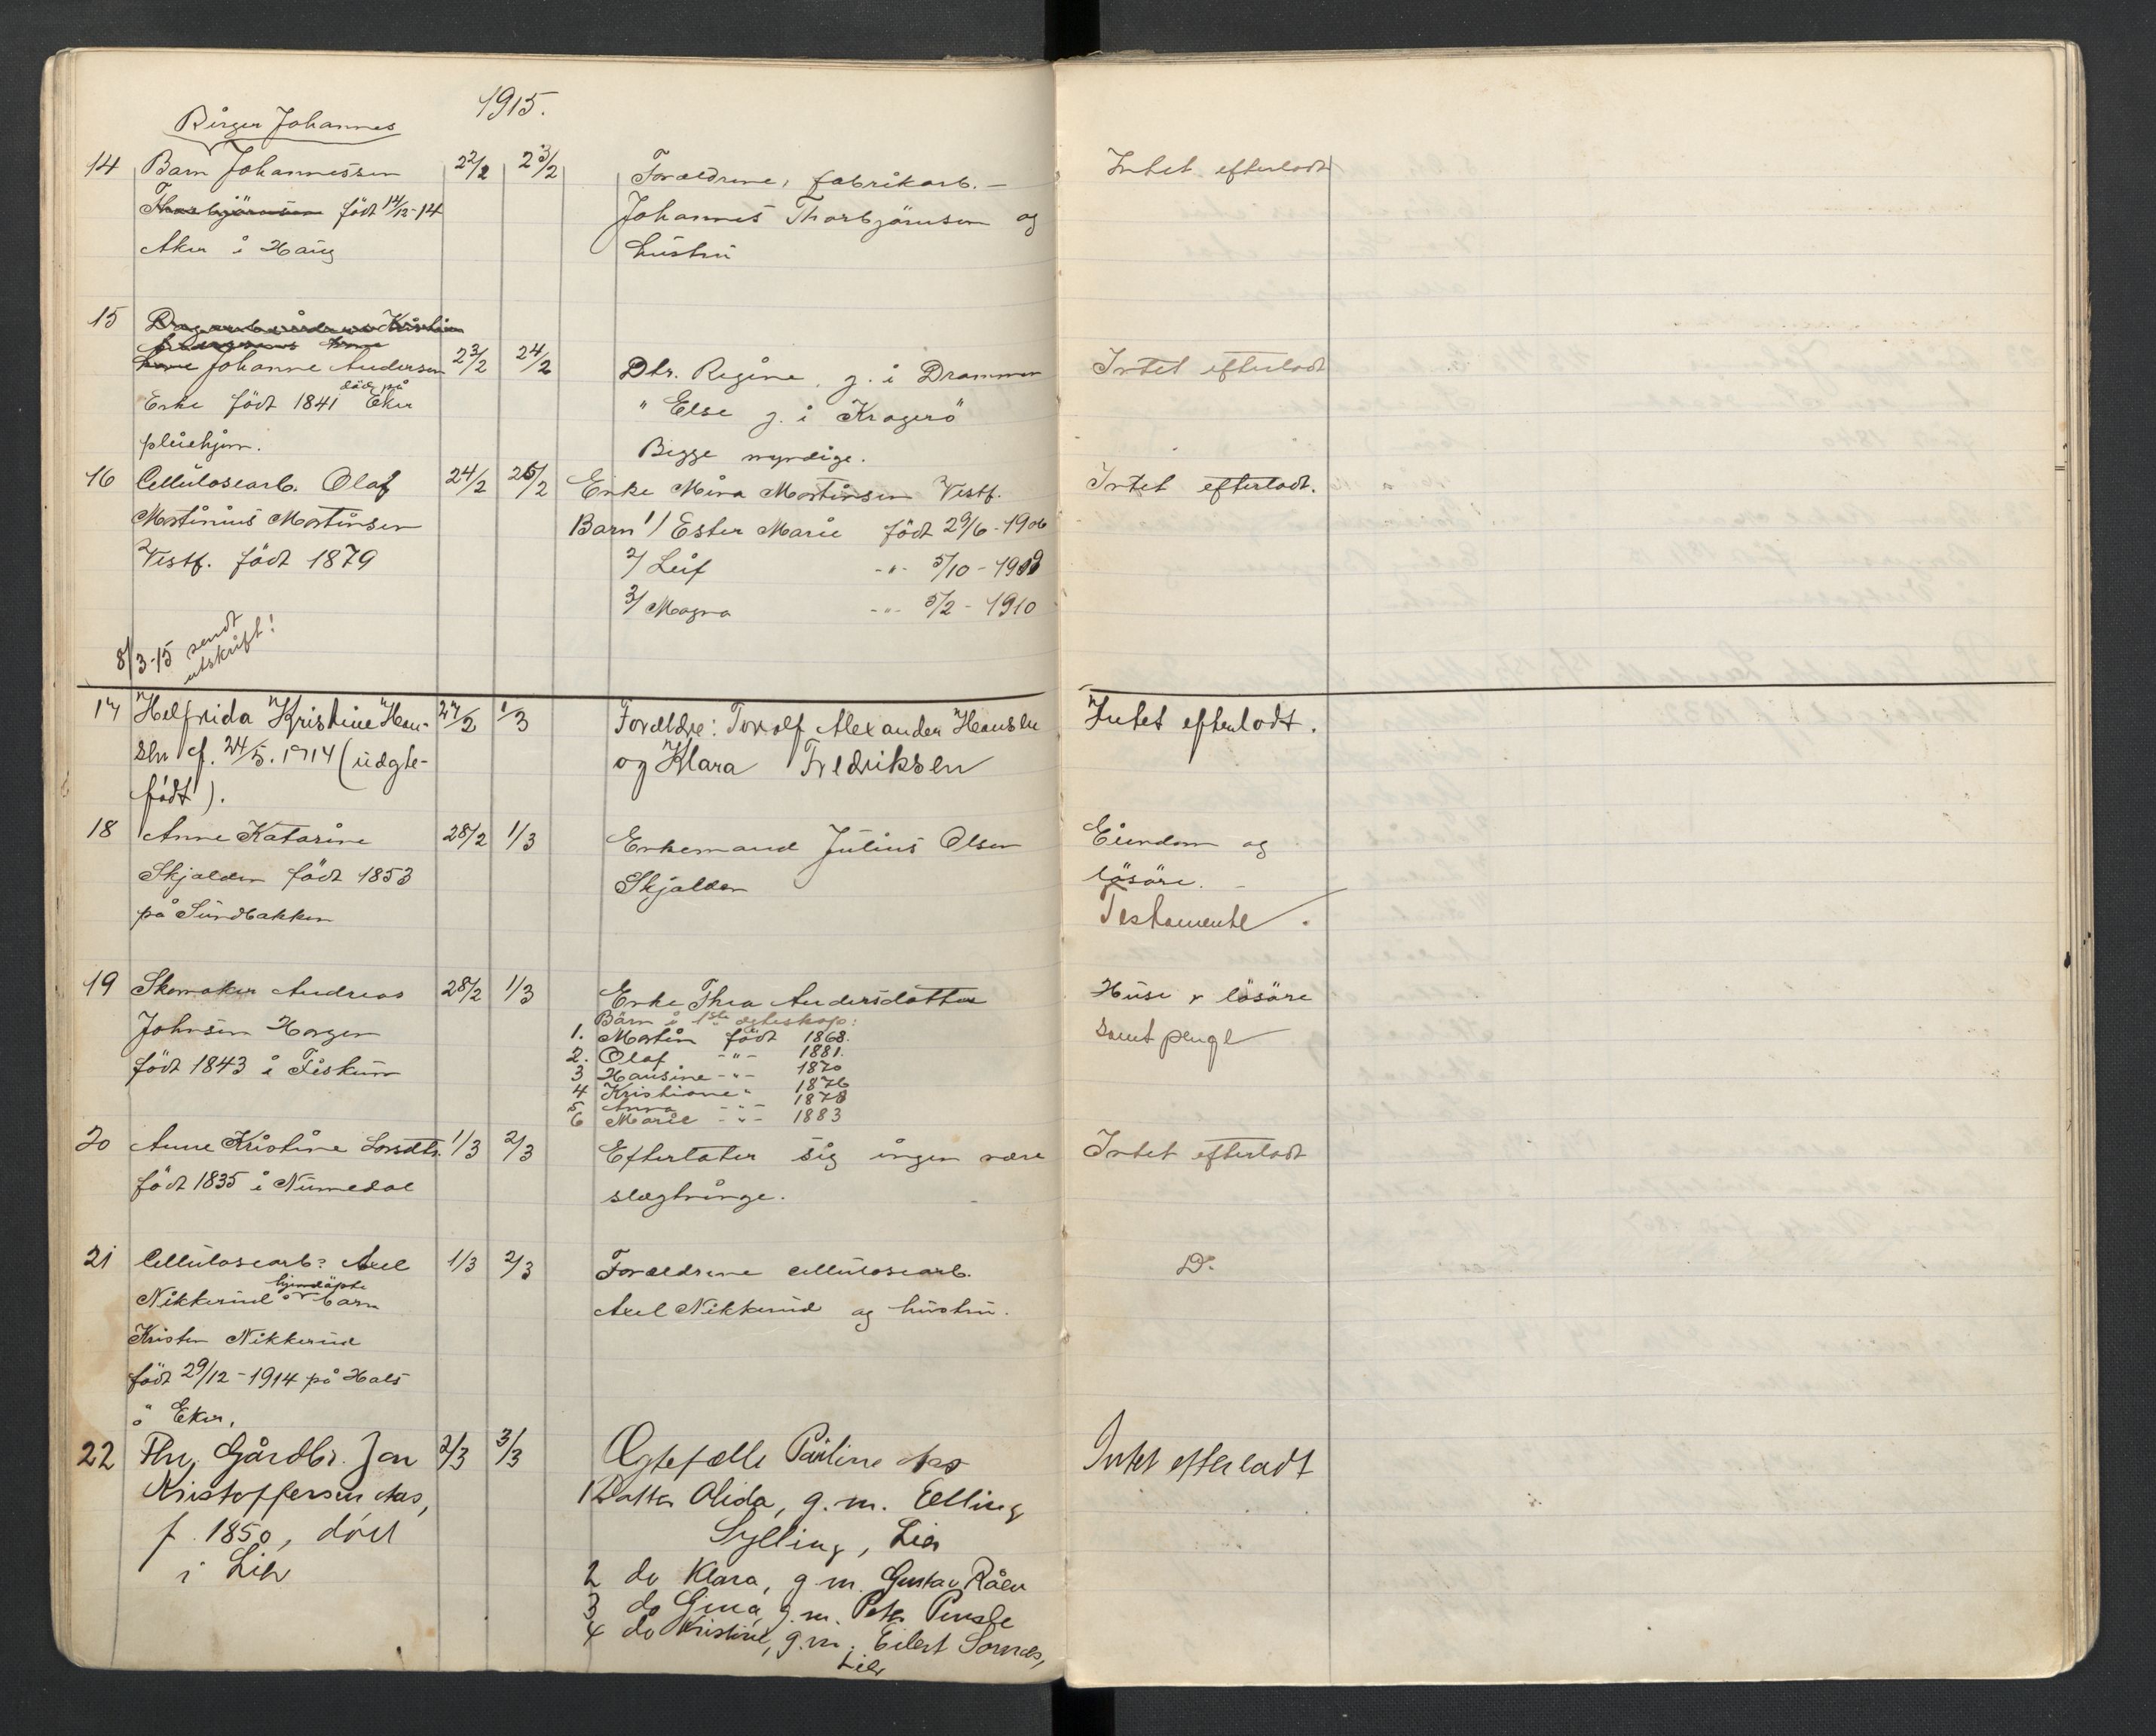 1915.
Birger Johannes
14 Barn Johannessen 22/2 23/2 Forældrene, fabrikarb. – Intet efterladt
Thorbjörnsen födt 14/12-14 Johannes Thorbjörnsen og
Aker i Haug hustru
15
Johanne Andersen 23/2 24/2 Dtr. Regine, g. i Drammen Intet efterladt
Enke födt 1841 död på Eker " Else g. i Kragerö
pleiehjem. Begge myndige.
16 Cellulosearb. Olaf 24/2 25/2 Enke Mina Martinsen Vestf. Intet efterladt.
Martinius Martinsen Barn 1/ Ester Marie födt 29/6-1906
Vestf. födt 1879 2/ Leif -"- 5/10-1908
3/ Magna -"- 5/2-1910
8/3-15 sendt utskrift!
17 Helfrida Kristine Han- 27/2 1/3 Forældre: Torolf Alexander Hansen Intet efterladt.
sen f. 24/5.1914 (uægte- og Klara Fredriksen
født).
18 Anne Katarine 28/2 1/3 Enkemand Julius Olsen Eiendom og
Skjalden födt 1853 Skjalden lösöre. –
på Sundbakken Testamente.
19 Skomaker Andreas 28/2 1/3 Enke Thea Andersdatter Huse & lösöre
Johnsen Horgen Börn i 1ste ægteskap: samt penge
födt 1843 i Fiskum 1. Martin födt 1868.
2. Olaf -"- 1881.
3 Hansine -"- 1870
4 Kristiane " 1876
5. Anna -"- 1878
6 Marie -"- 1883
20 Anne Kristine Larsdtr. 1/3 2/3 Efterlater sig ingen nære Intet efterladt
födt 1835 i Numedal slegtninge.
21 Cellulosearb. Axel 1/3 2/3 Forældrene cellulosearb. D.
Nikkerud s hjemdöpte barn Axel Nikkerud og hustru.
Kristen Nikkerud
födt 29/12-1914 på Hals
i Eker.
22 Fhv. Gårdbr. Jon 2/3 3/3 Ægtefælle Pauline Aas Intet efterladt
Kristoffersen Aas, 1 Datter Olida, g.m. Elling
f. 1850, død Sylling, Lier
i Lier 2 do Klara, g.m. Gustav Råen
3 do Gina, g.m. Peter
4 do Kristine, g.m. Eilert
Lier